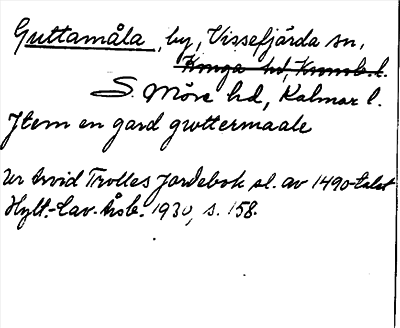 Guttamåla, by, Vissefjärda sn,
Konga hd, Kronob. l.
S. Möre hd, Kalmar l.
Jtem en gard grottermaale
Ur Arvid Trolles Jordebok sl. av 1490-talet
Hylt.-Cav. Årsb. 1930, s. 158.